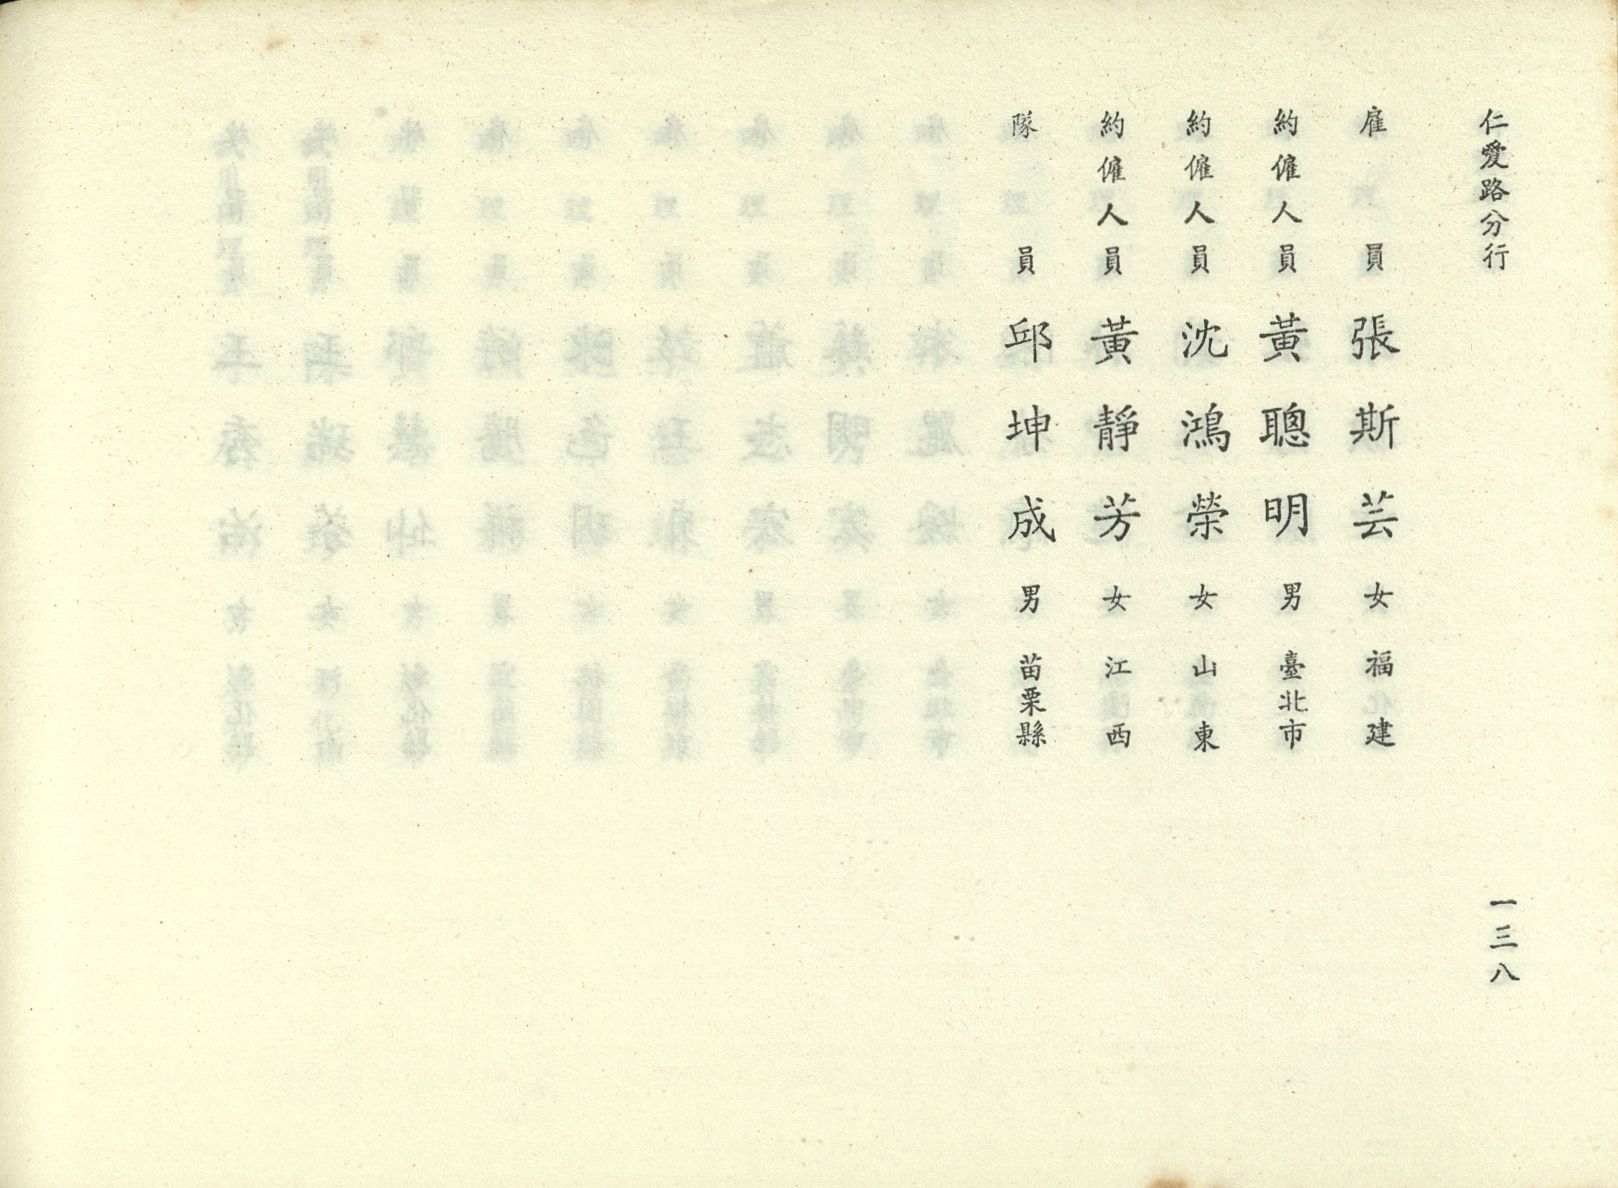 仁愛路分行
雇員 張斯芸 女 福建
約僱人員 黃聰明 男 臺北市
約僱人員 沈鴻榮 女 山東
約僱人員 黃靜芳 女 江西
隊員 邱坤成 男 苗栗縣
一三八